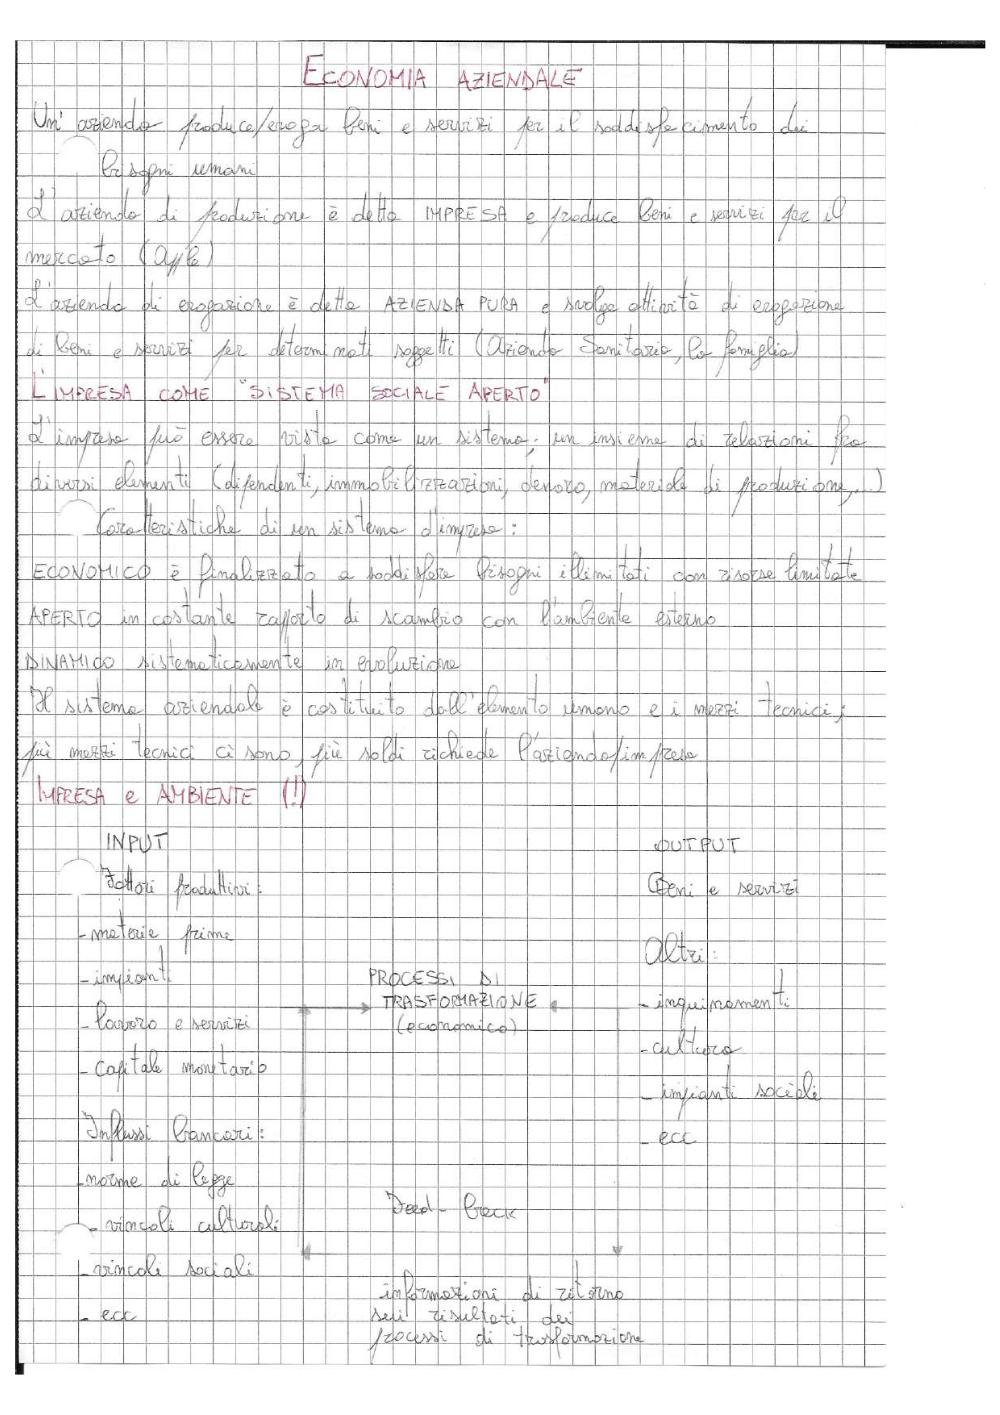 ECONOMIA AZIENDALE
Un' azienda produce/eroga beni e servizi per il soddisfacimento dei
bisogni umani
L'azienda di produzione è detta IMPRESA e produce beni e servizi per il
mercato (Apple)
L'azienda di erogazione è detta AZIENDA PURA e svolge attività di erogazione
di beni e servizi per determinati soggetti (Azienda Sanitaria, la famiglia)
L'IMPRESA COME "SISTEMA SOCIALE APERTO"
L'impresa può essere vista come un sistema; un insieme di relazioni fra
diversi elementi (dipendenti, immobilizzazioni, denaro, materiale di produzione,...)
Caratteristiche di un sistema d'impresa:
ECONOMICO è finalizzato a soddisfare bisogni illimitati con risorse limitate
APERTO in costante rapporto di scambio con l'ambiente esterno
DINAMICO sistematicamente in evoluzione
Il sistema aziendale è costituito dall'elemento umano e i mezzi tecnici;
più mezzi tecnici ci sono, più soldi richiede l'azienda/impresa
IMPRESA e AMBIENTE (!)
INPUT
Fattori produttivi:
- materie prime
- impianti
- lavoro e servizi
- capitale monetario
Influssi bancari:
- norme di legge
- vincoli culturali
- vincoli sociali
- ecc
PROCESSI DI
TRASFORMAZIONE
(economico)
Feed-back
informazioni di ritorno
sui risultati dei
processi di trasformazione
OUTPUT
Beni e servizi
Altri:
- inquinamenti
- cultura
- impianti sociali
- ecc